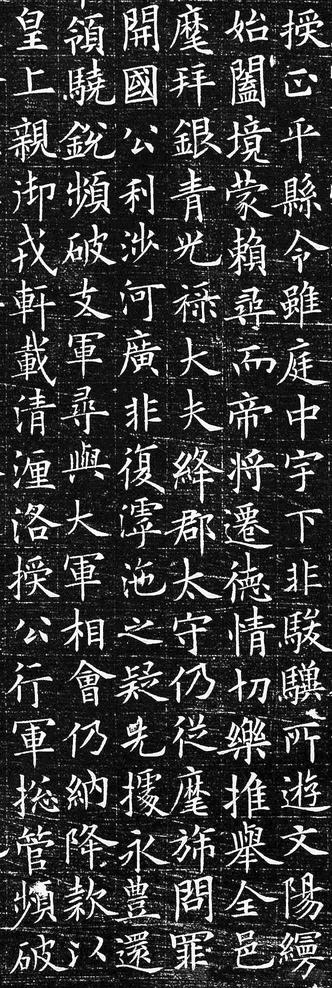 授正平縣令雖庭中宇下非駿驥所遊文陽縵
始闔境蒙賴尋而帝将遷德情切樂推舉全邑
麾拜銀青光祿大夫絳郡太守仍從麾旆問罪
開國公利涉河廣非復滹沲之疑先據永豊還
領驍銳頻破支軍尋與大軍相會仍納降款以
皇上親御戎軒載清瀍洛授公行軍揔管頻破